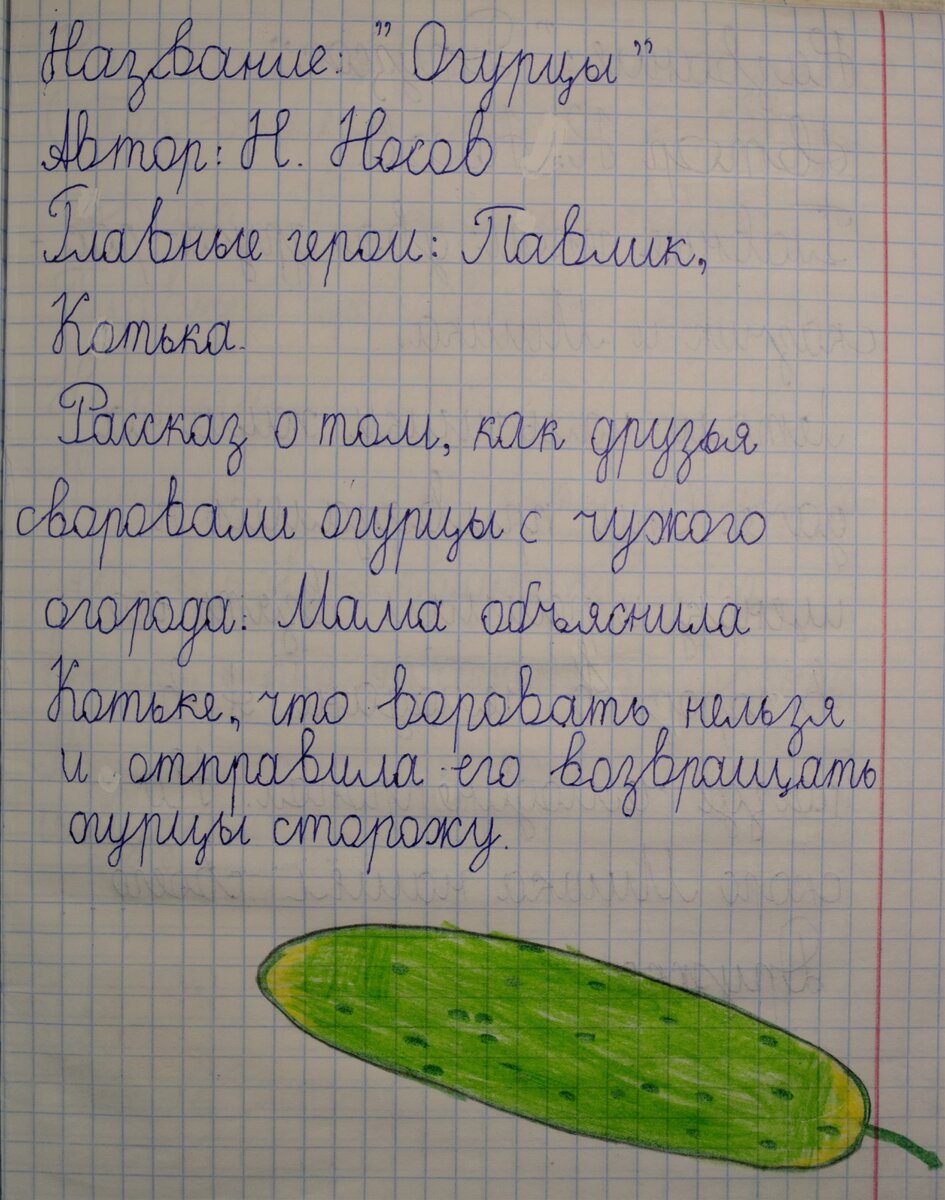 Название: "Огурцы"
Автор: Н. Носов
Главные герои: Павлик,
Котька.
Рассказ о том, как друзья
своровали огурцы с чужого
огорода. Мама объяснила
Котьке, что воровать нельзя
и отправила его возвращать
огурцы сторожу.